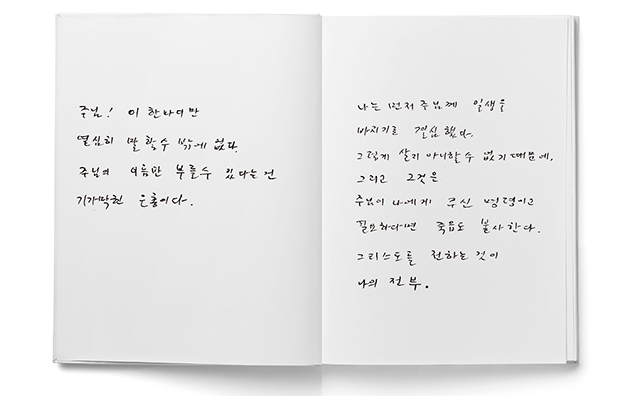 주님! 이 한마디만
열심히 말 할 수 밖에 없다.
주님의 이름만 부를 수 있다는 건
기가막힌 은총이다.
나는 먼저 주님께 일생을
바치기로 결심했다.
그렇게 살지 아니할 수 없기 때문에,
그리고 그것은
주님이 나에게 주신 명령이고
필요하다면 죽음도 불사한다.
그리스도를 전하는 것이
나의 전부.